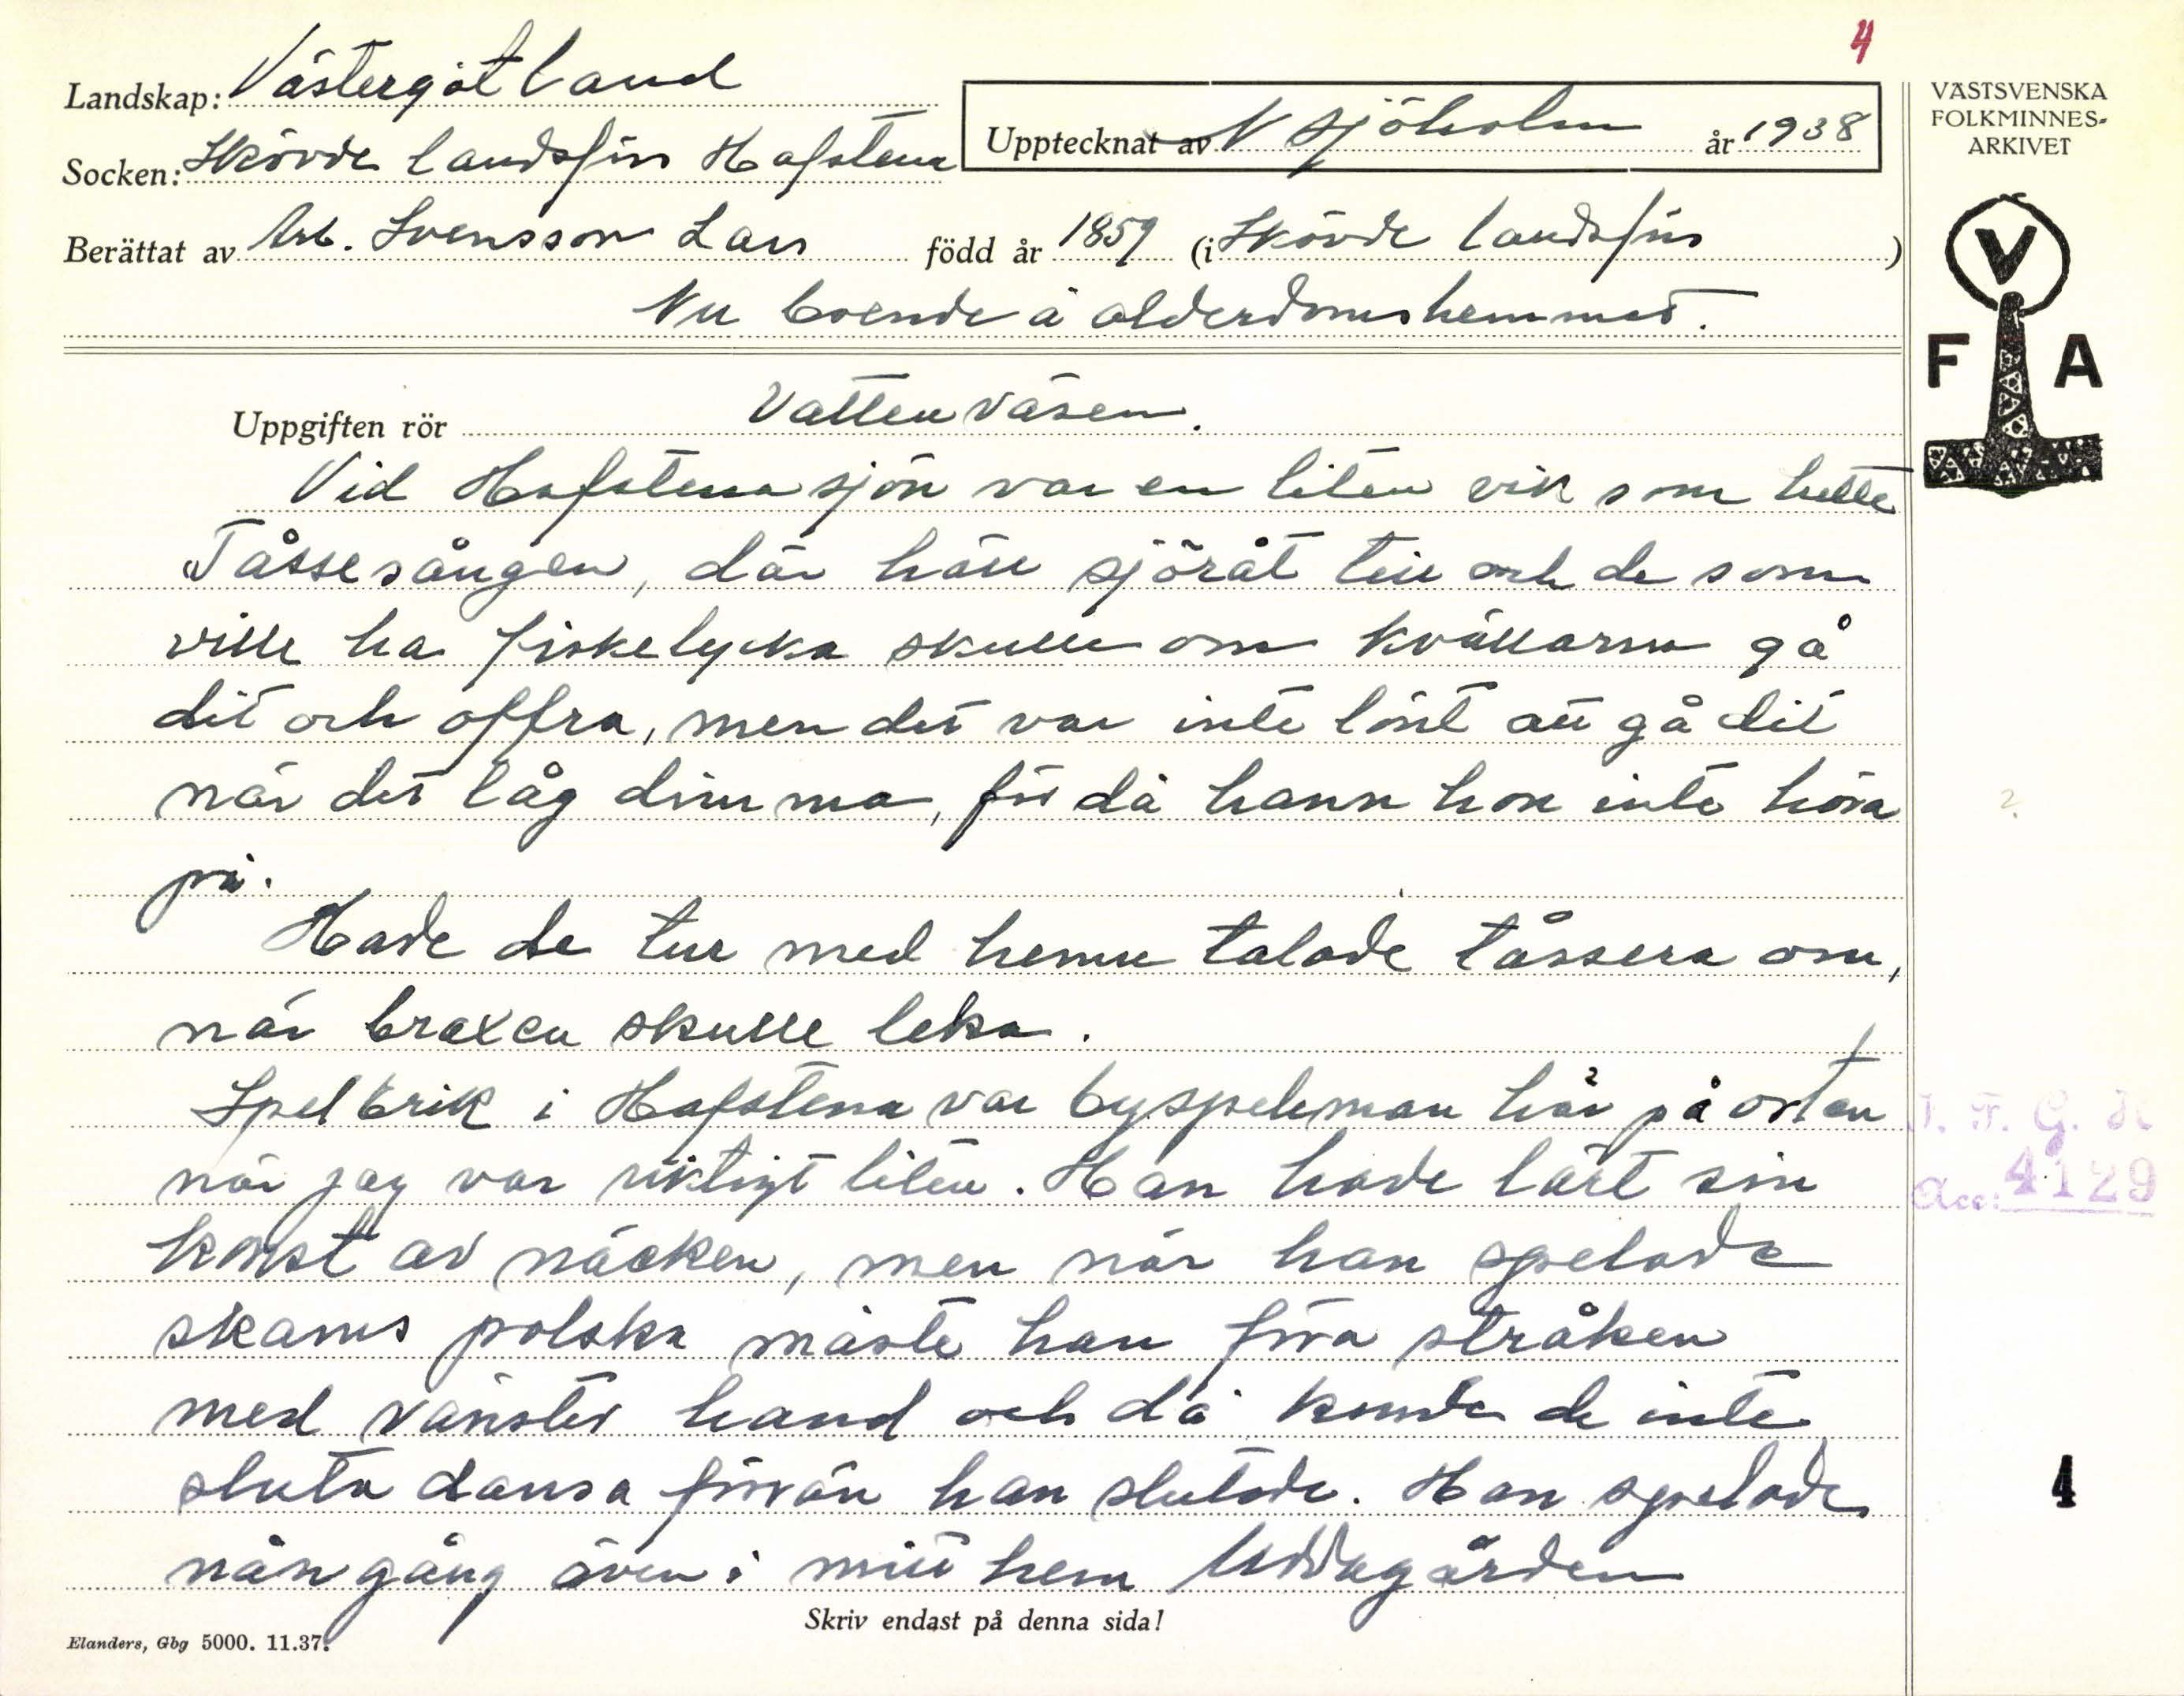 4
Landskap: Västergötland
Socken: Skövde landsför Hafstena
Upptecknat av N Sjöholm år 1938
Berättat av Arb. Svensson Lars född år 1859 (i Skövde landsför)
Nu boende å ålderdomshemmet.
VÄSTSVENSKA
FOLKMINNES-
ARKIVET
V
F A
Uppgiften rör Vattenväsen.
Vid Hafstenasjön var en liten vik som hette
Tåssesången, där höll sjöråt till och de som
ville ha fiskelycka skulle om kvällarna gå
dit och offra, men det var inte lönt att gå dit
när det låg dimma, för då hann hon inte höra
på.
?
Hade de tur med henne talade tåssera om,
när braxen skulle leka.
Spel Erik i Hafstena var byspeleman här på orten
när jag var riktigt liten. Han hade lärt sin
konst av näcken, men när han spelade
skams polska måste han föra stråken
med vänster hand och då kunde de inte
sluta dansa förrän han slutade. Han spelade
nån gång även i mitt hem Uddagården
Acc: 4129
4
Skriv endast på denna sida!
Elanders, Gbg 5000. 11.37.